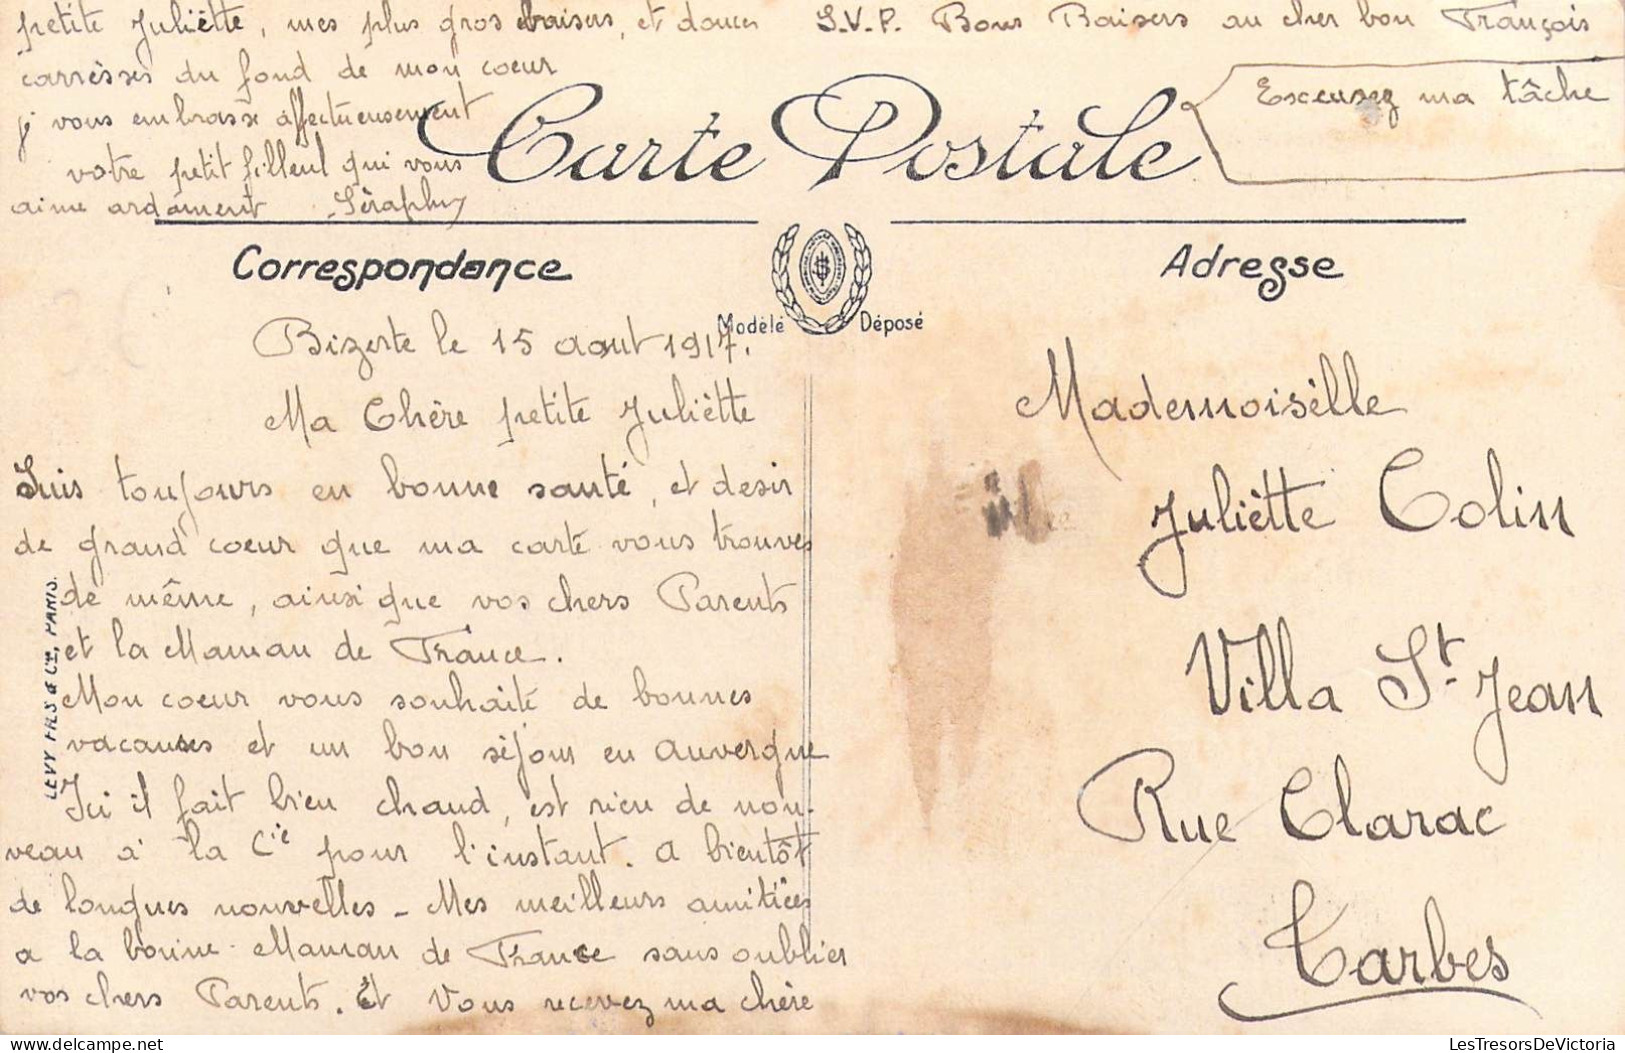 petite Juliètte, mes plus gros baisers, et douces
carrèsses du fond de mon coeur
j vous embrasse affectueusement
votre petit filleul qui vous
aime ardament
S.V.P. Bons Baisers au cher bon François
Excusez ma tâche
Carte Postale
Correspondance
Adresse
Modèle Déposé
Bizerte le 15 aout 1917.
Ma Chère petite Juliètte
Suis toujours en bonne santé, et desir
de grand coeur que ma carte vous trouves
de même, ainsi que vos chers Parents
et la Maman de France.
Mon coeur vous souhaite de bonnes
vacanses et un bon séjour en Auvergne
Ici il fait bien chaud, est rien de nou-
veau a la Cie pour l'instant. a bientôt
de longues nouvelles - Mes meilleurs amitiées
a la bonne Maman de France sans oublier
vos chers Parents. Et Vous recevez ma chère
LEVY FILS & Cie, PARIS.
Mademoisèlle
Juliètte Colin
Villa St. Jean
Rue Clarac
Tarbes
LesTresorsDeVictoria